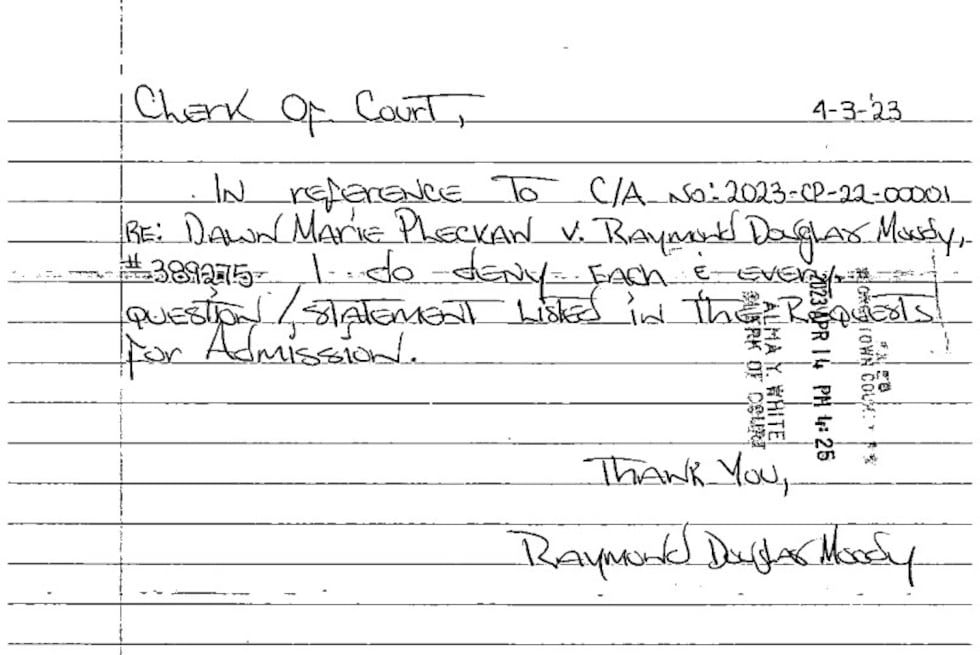 Cherk Of Court,
4-3-'23
In reference To C/A No: 2023-CP-22-00001
RE: Dawn Marie Pleckan v. Raymond Douglas Moody,
#389275 I do deny Each & every
question/statement Listed in The Requests
for Admission.
FILED
GEORGETOWN COUNTY
2023 APR 14 PM 4:25
ALMA Y. WHITE
CLERK OF COURT
Thank You,
Raymond Douglas Moody